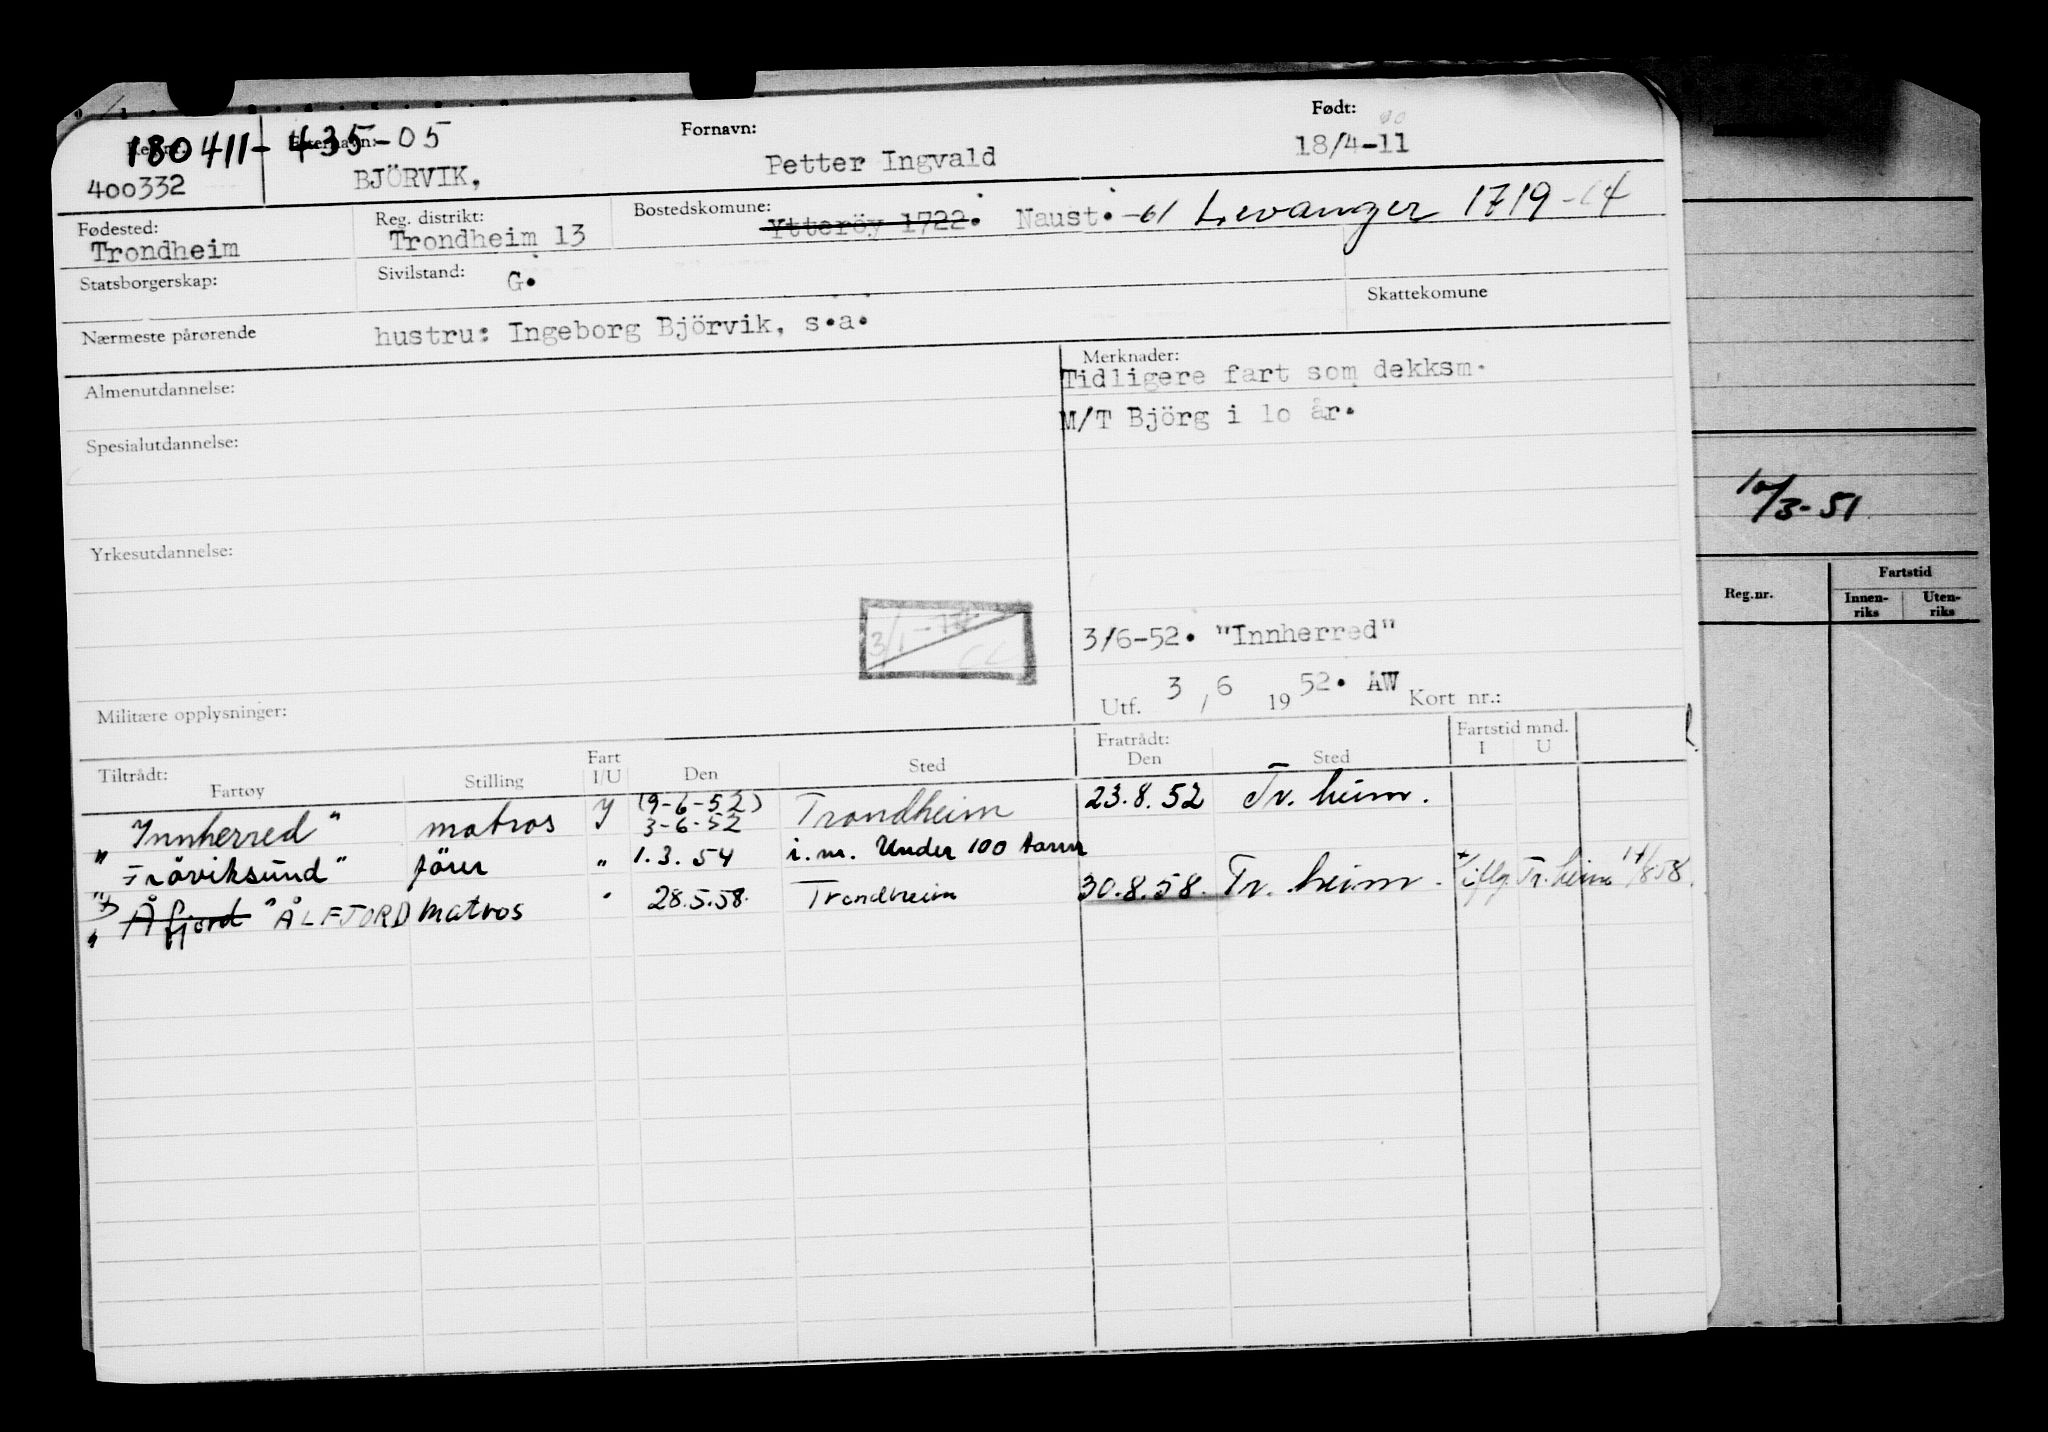 180411-435-05
Reg.nr. Etternavn: Fornavn: Født:
400332 BJÖRVIK, Petter Ingvald 18/4-11
Fødested: Reg. distrikt: Bostedskomune:
Trondheim Trondheim 13 Ytteröy 1722. Naust. -61 Levanger 1719-64
Statsborgerskap: Sivilstand: G. Skattekomune
Nærmeste pårørende hustru: Ingeborg Björvik, s.a.
Almenutdannelse: Merknader:
Tidligere fart som dekksm.
M/T Björg i lo år.
Spesialutdannelse:
10/3-51
Yrkesutdannelse:
Fartstid
Reg.nr. Innen-riks Uten-riks
3/1-74
3/6-52. "Innherred"
Utf. 3 / 6 1952. AW Kort nr.:
Militære opplysninger:
Tiltrådt: Fratrådt: Fartstid mnd.
Fartøy Stilling Fart I/U Den Sted Den Sted I U
"Innherred" matros I (9-6-52) 3-6-52 Trondheim 23.8.52 Tr.heim.
"Fråviksund" förer " 1.3.54 i.m. Under 100 tonn
"Åfjord" ÅLFJORD matros " 28.5.58. Trondheim 30.8.58. Tr.heim. iflg. Tr.heim 14/8.58.